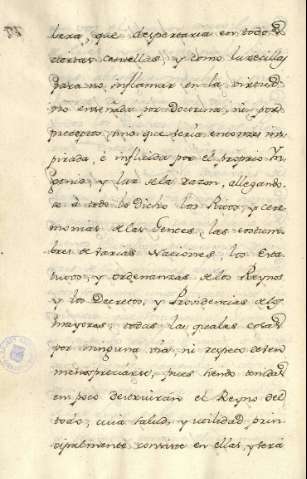 bera, que despertaria en todo
ciertas centellas, y como
para no inflamar en la virtud
no enseñada por Doctrina, ni por
precepto sino que seria encontes ins
pirada, è influida por el proprio In
genio, y luz de la razon, allegando
se à todo lo dicho los Ritos, y cere
monias de las Gentes, las costum
bres de varias Naciones, los Esta
tutos, y ordenanzas de los Reynos
y los Decretos, y Providencias de los
mayores, todas las quales cosas
por ninguna via, ni respeto deben
menospreciarse, pues siendo tenidas
en poco destruiràn el Reyno del
todo, cuia salud, y utilidad prin
cipalmente consiste en ellas, y serà